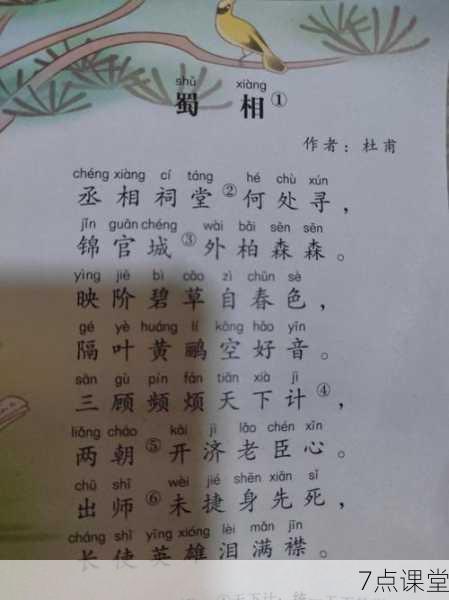 shǔ xiàng
蜀相①
作者：杜甫
chéng xiàng cí táng hé chù xún
丞相祠堂②何处寻，
jǐn guān chéng wài bǎi sēn sēn
锦官城③外柏森森。
yìng jiē bì cǎo zì chūn sè
映阶碧草自春色，
gé yè huáng lí kōng hǎo yīn
隔叶黄鹂空好音。
sān gù pín fán tiān xià jì
三顾频烦天下计④，
liǎng cháo kāi jì lǎo chén xīn
两朝⑤开济老臣心。
chū shī wèi jié shēn xiān sǐ
出师⑥未捷身先死，
cháng shǐ yīng xióng lèi mǎn jīn
长使英雄泪满襟。
7点课堂